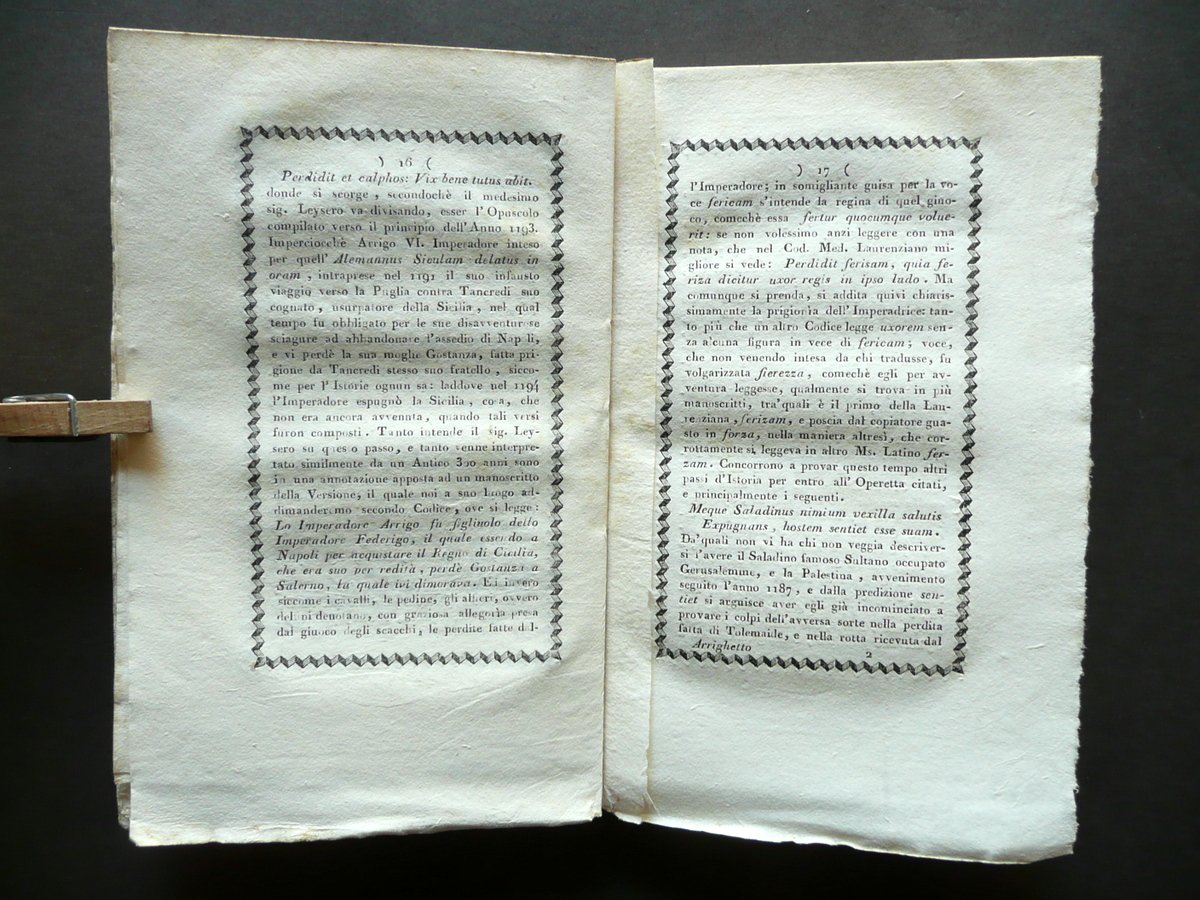 ) 16 (
Perdidit et calphos: Vix bene tutus abit.
donde si scorge, secondochè il medesimo
sig. Leysero va divisando, esser l'Opuscolo
compilato verso il principio dell'Anno 1193.
Imperciocchè Arrigo VI. Imperadore inteso
per quell' Alemannus Siculam delatus in
oram, intraprese nel 1191 il suo infausto
viaggio verso la Puglia contra Tancredi suo
cognato, usurpatore della Sicilia, nel qual
tempo fu obbligato per le sue disavventurose
sciagure ad abbandonare l'assedio di Napoli,
e vi perdè la sua moglie Gostanza, fatta pri-
gione da Tancredi stesso suo fratello, sicco-
me per l'Istorie ognun sa: laddove nel 1194
l'Imperadore espugnò la Sicilia, cosa, che
non era ancora avvenuta, quando tali versi
furon composti. Tanto intende il sig. Ley-
sero su questo passo, e tanto venne interpre-
tato similmente da un Antico 300 anni sono
in una annotazione apposta ad un manoscritto
della Versione, il quale noi a suo luogo ad-
dimanderemo secondo Codice, ove si legge:
Lo Imperadore Arrigo fu figliuolo dello
Imperadore Federigo, il quale essendo a
Napoli per acquistare il Regno di Cicilia,
che era suo per redità, perdè Gostanza a
Salerno, la quale ivi dimorava. Ei invero
siccome i cavalli, le pedine, gli alberi, ovvero
delfini denotano, con graziosa allegoria presa
dal giuoco degli scacchi, le perdite fatte dal-
) 17 (
l'Imperadore; in somigliante guisa per la vo-
ce fericam s'intende la regina di quel giuo-
co, comechè essa fertur quocumque volue-
rit: se non volessimo anzi leggere con una
nota, che nel Cod. Med. Laurenziano mi-
gliore si vede: Perdidit ferisam, quia fe-
riza dicitur uxor regis in ipso ludo. Ma
comunque si prenda, si addita quivi chiaris-
simamente la prigionia dell'Imperadrice: tan-
to più che un altro Codice legge uxorem sen-
za alcuna figura in vece di fericam; voce,
che non venendo intesa da chi tradusse, fu
volgarizzata fierezza, comechè egli per av-
ventura leggesse, qualmente si trova in più
manoscritti, tra'quali è il primo della Lau-
renziana, ferizam, e poscia dal copiatore gua-
sto in forza, nella maniera altresì, che cor-
rottamente si leggeva in altro Ms. Latino fer-
zam. Concorrono a provar questo tempo altri
passi d'Istoria per entro all'Operetta citati,
e principalmente i seguenti.
Meque Saladinus nimium vexilla salutis
Expugnans, hostem sentiet esse suam.
Da'quali non vi ha chi non veggia descriver-
si l'avere il Saladino famoso Sultano occupato
Gerusalemme, e la Palestina, avvenimento
seguito l'anno 1187, e dalla predizione sen-
tiet si arguisce aver egli già incominciato a
provare i colpi dell'avversa sorte nella perdita
fatta di Tolemaide, e nella rotta ricevuta dal
Arrighetto 2